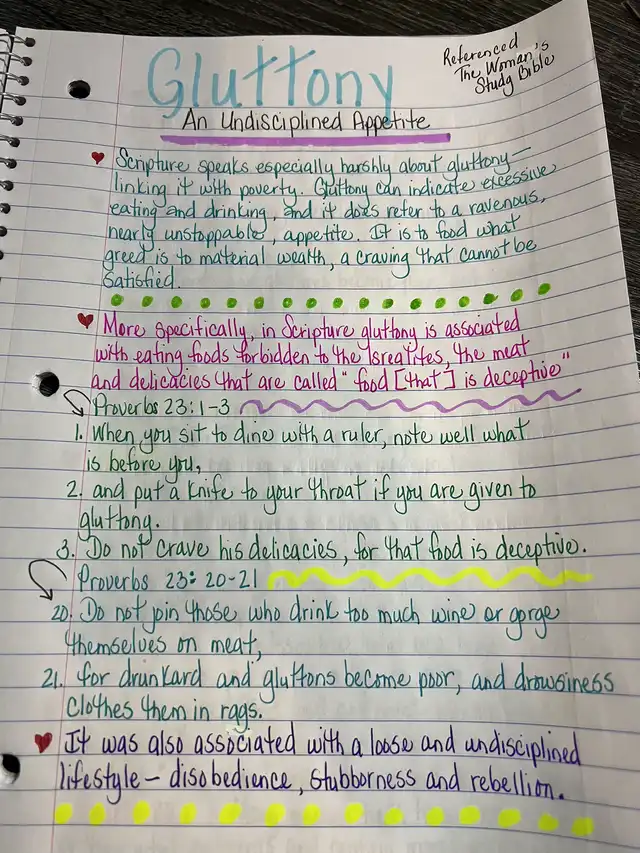 Gluttony
Referenced
The Woman's
Study Bible
An Undisciplined Appetite
Scripture speaks especially harshly about gluttony—
linking it with poverty. Gluttony can indicate excessive
eating and drinking, and it does refer to a ravenous,
nearly unstoppable, appetite. It is to food what
greed is to material wealth, a craving that cannot be
satisfied.
More specifically, in Scripture gluttony is associated
with eating foods forbidden to the Isrealites, the meat
and delicacies that are called "food [that] is deceptive"
Proverbs 23:1-3
1. When you sit to dine with a ruler, note well what
is before you,
2. and put a knife to your throat if you are given to
gluttong.
3. Do not crave his delicacies, for that food is deceptive.
Proverbs 23: 20-21
20. Do not join those who drink too much wine or gorge
themselves on meat,
21. for drunkard and gluttons become poor, and drowsiness
clothes them in rags.
It was also associated with a loose and undisciplined
lifestyle— disobedience, stubborness and rebellion.